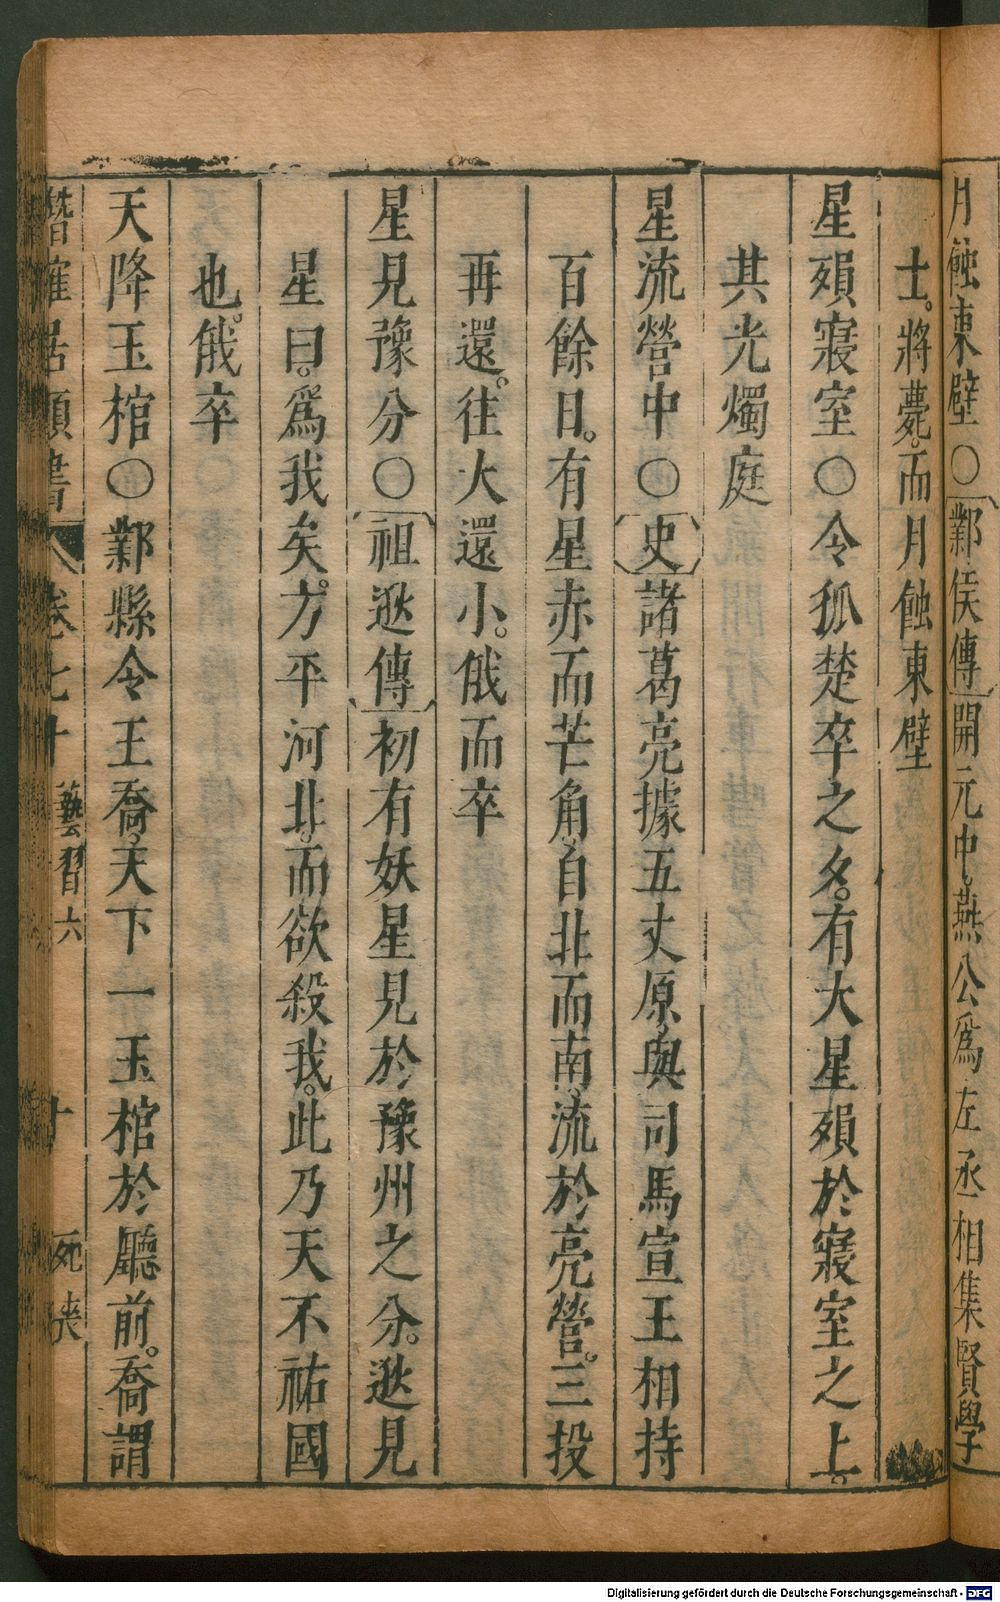 月蝕東壁○鄴侯傳開元中燕公爲左丞相集賢學
士。將薨。而月蝕東壁
星殞寢室○令狐楚卒之夕。有大星殞於寢室之上。
其光燭庭
星流營中○史諸葛亮據五丈原。與司馬宣王相持
百餘日。有星赤而芒角。自北而南。流於亮營。三投
再還。往大還小。俄而卒
星見豫分○祖逖傳初有妖星見於豫州之分。逖見
星曰。爲我矣。方平河北。而欲殺我。此乃天不祐國
也。俄卒
天降玉棺○鄴縣令王喬。天下一玉棺於廳前。喬謂
潛確居類書 卷七十 藝習六 十 死喪
Digitalisierung gefördert durch die Deutsche Forschungsgemeinschaft - DFG